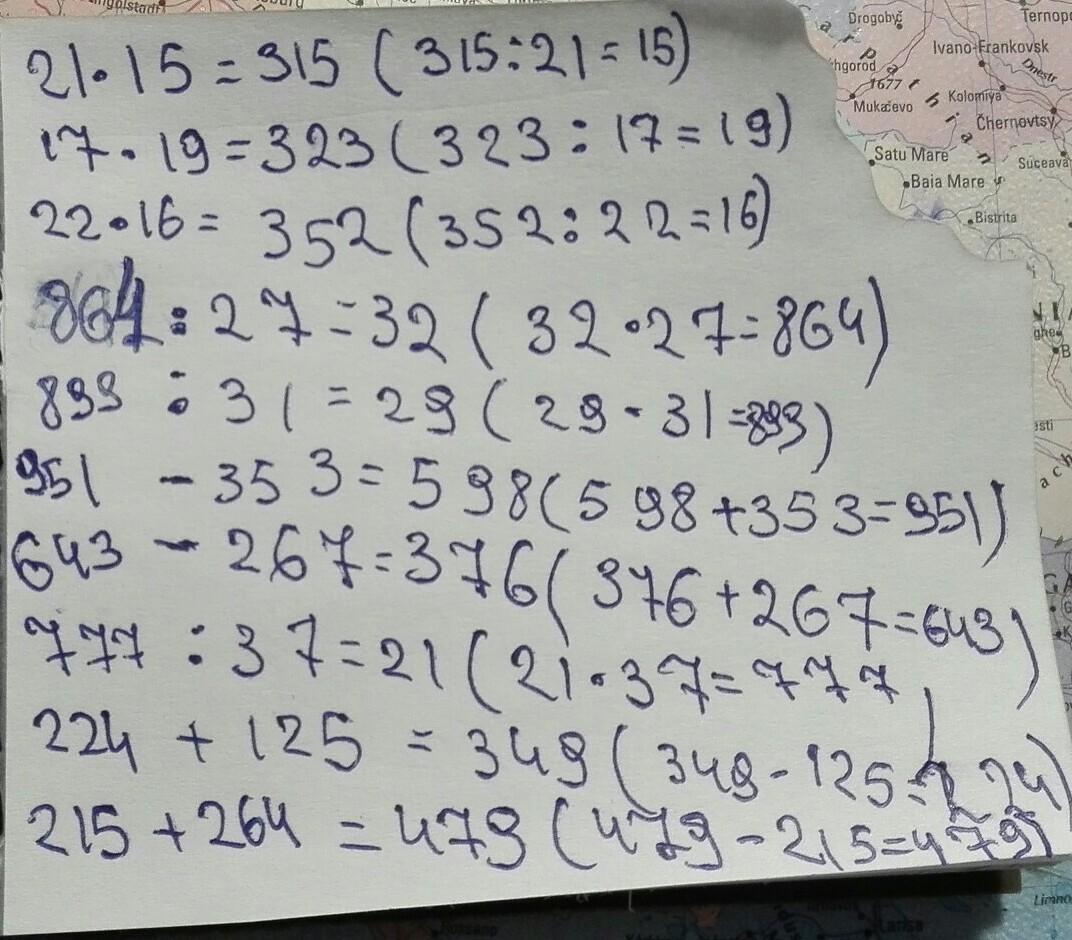 21·15=315 (315:21=15)
17·19=323 (323:17=19)
22·16=352 (352:22=16)
864:27=32 (32·27=864)
899:31=29 (29·31=899)
951-353=598 (598+353=951)
643-267=376 (376+267=643)
777:37=21 (21·37=777)
224+125=349 (349-125=224)
215+264=479 (479-215=479)
Drogobyč
Ternop
Ivano-Frankovsk
hgorod
1677
Kolomiya
Dnestr
Mukačevo
Chernovtsy
Satu Mare
Suceava
Baia Mare
Bistrita
Limno